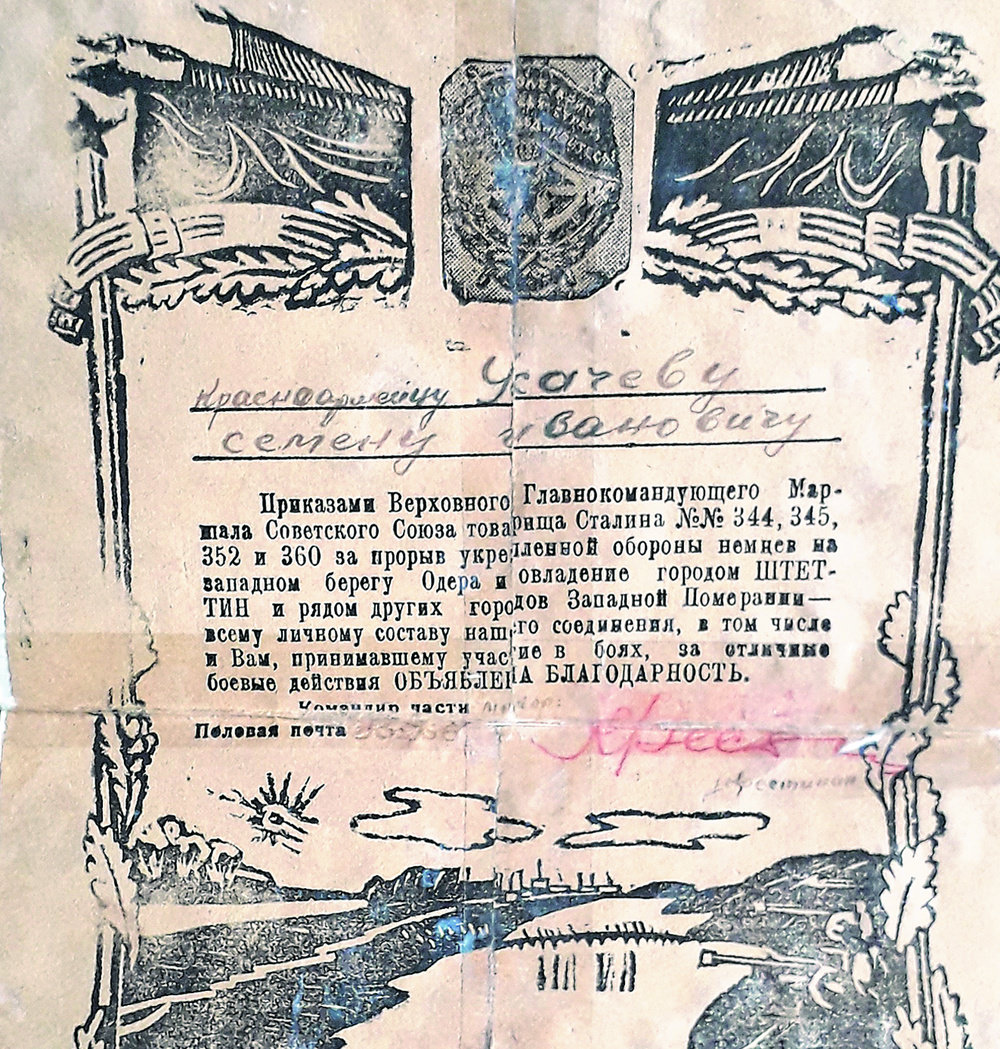 Красноармейцу Усачеву
семену ивановичу
Приказами Верховного Главнокомандующего Мар-
шала Советского Союза товарища Сталина №№ 344, 345,
352 и 360 за прорыв укрепленной обороны немцев на
западном берегу Одера и овладение городом ШТЕТ-
ТИН и рядом других городов Западной Померании—
всему личному составу нашего соединения, в том числе
и Вам, принимавшему участие в боях, за отличные
боевые действия ОБЪЯВЛЕНА БЛАГОДАРНОСТЬ.
Командир части
Полевая почта